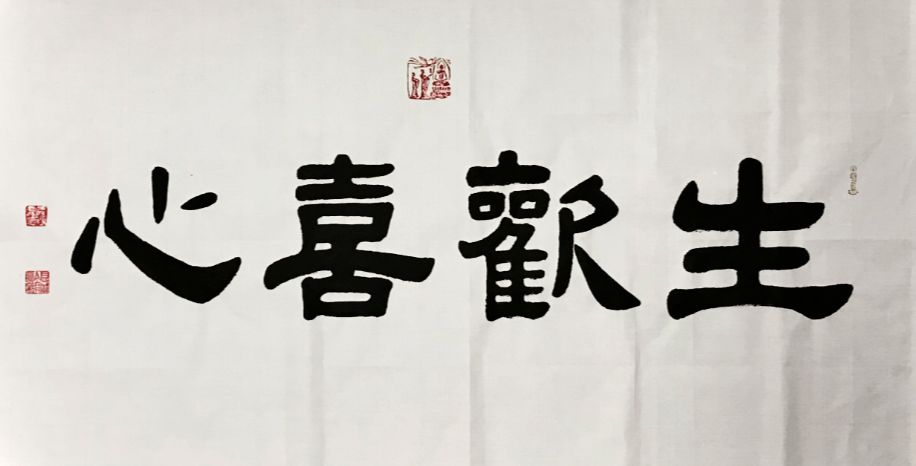 生歡喜心